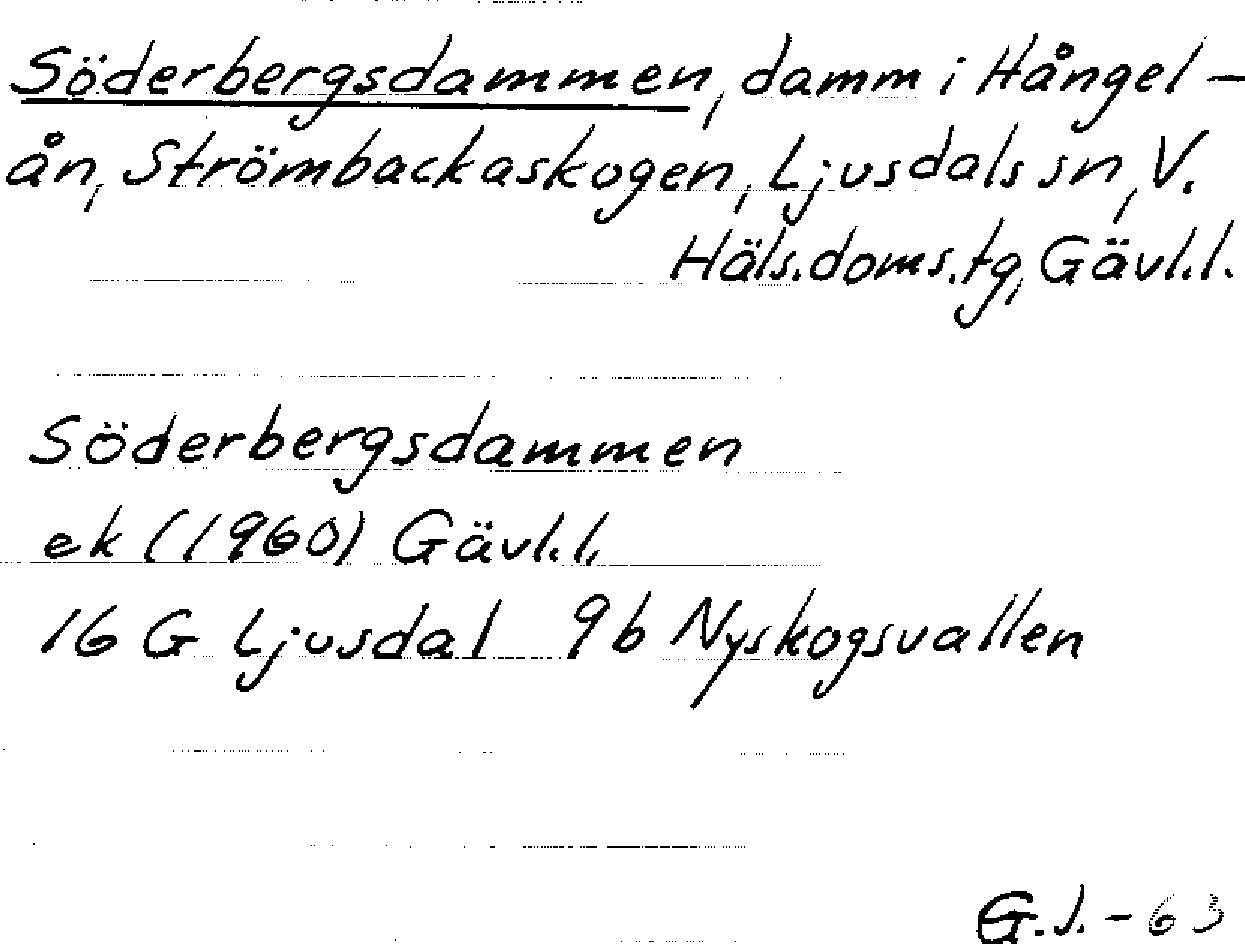 Söderbergsdammen, damm i Hångel-
ån, Strömbackaskogen, Ljusdals sn, V.
Häls.doms.tg, Gävl.l.
Söderbergsdammen
ek (1960) Gävl.l.
16 G Ljusdal 9b Nyskogsvallen
G.J. - 63